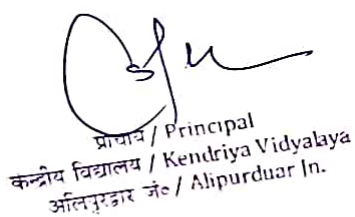 प्राचार्य / Principal
केन्द्रीय विद्यालय / Kendriya Vidyalaya
अलिपुरद्वार जं० / Alipurduar Jn.